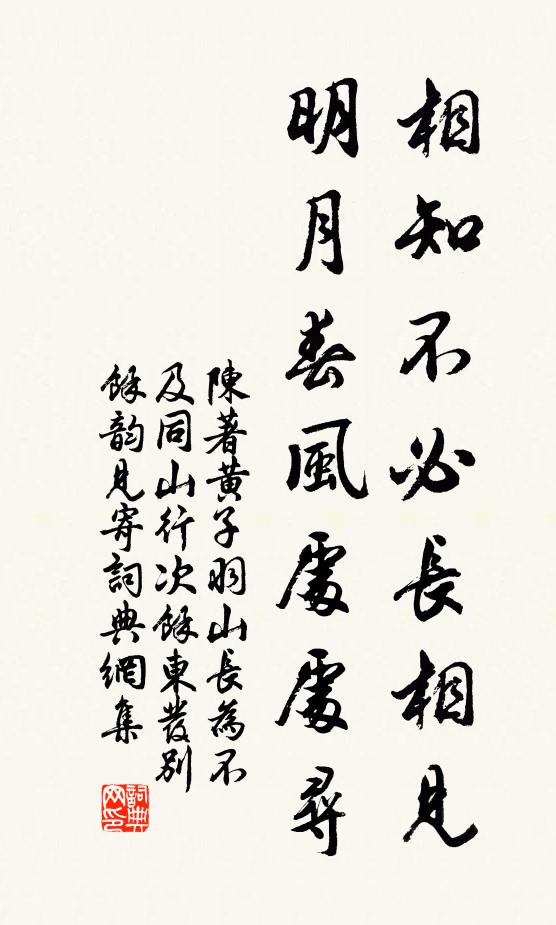 相知不必長相見
明月春風處處尋
陳著黄子羽山長為不
及同山行次餘東發別
餘韵見寄詞典網集
詞典网印